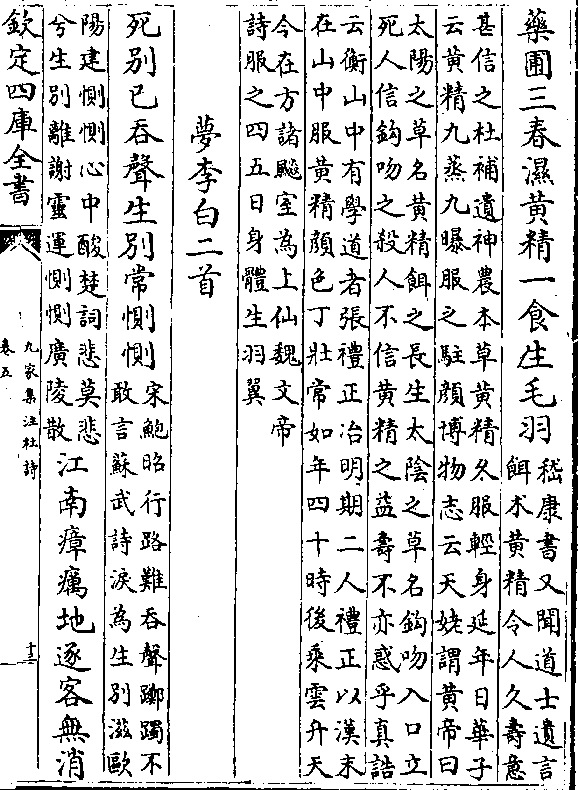 藥圃三春濕黄精一食生毛羽嵇康書又聞道士遺言
餌术黄精令人久壽意
甚信之杜補遺神農本草黄精久服輕身延年日華子
云黄精九蒸九曝服之駐顔博物志云天姥謂黄帝曰
太陽之草名黄精餌之長生太陰之草名鈎吻入口立
死人信鈎吻之殺人不信黄精之益壽不亦惑乎真誥
云衡山中有學道者張禮正冶明期二人禮正以漢末
在山中服黄精顔色丁壯常如年四十時後乘雲升天
今在方諸飈室為上仙魏文帝
詩服之四五日身體生羽翼
夢李白二首
死别已吞聲生别常惻惻宋鮑昭行路難吞聲躑躅不
敢言蘇武詩淚為生别滋歐
陽建惻惻心中酸楚詞悲莫悲
兮生别離謝靈運惻惻廣陵散江南瘴癘地逐客無消
欽定四庫全書
九家集注杜詩
卷五
十三